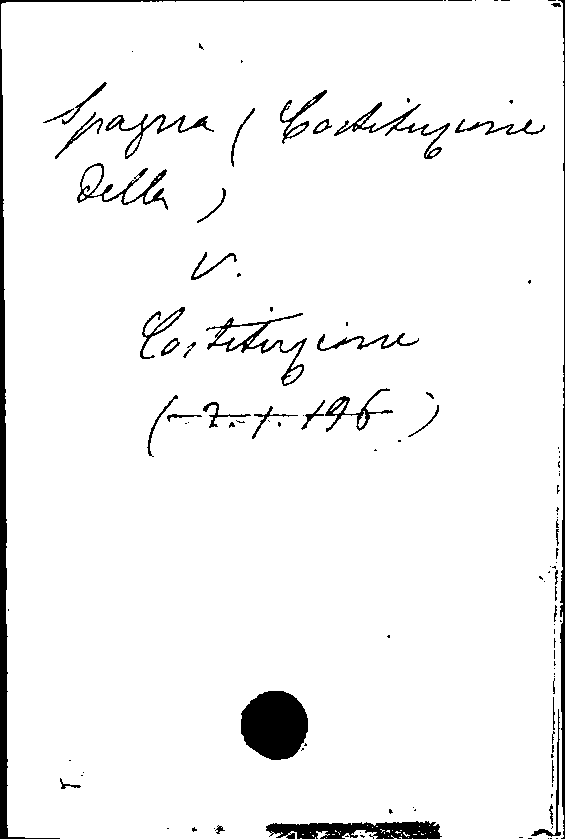 Spagna ( Costituzione
della )
V.
Costituzione
( 2. 1. 196 )